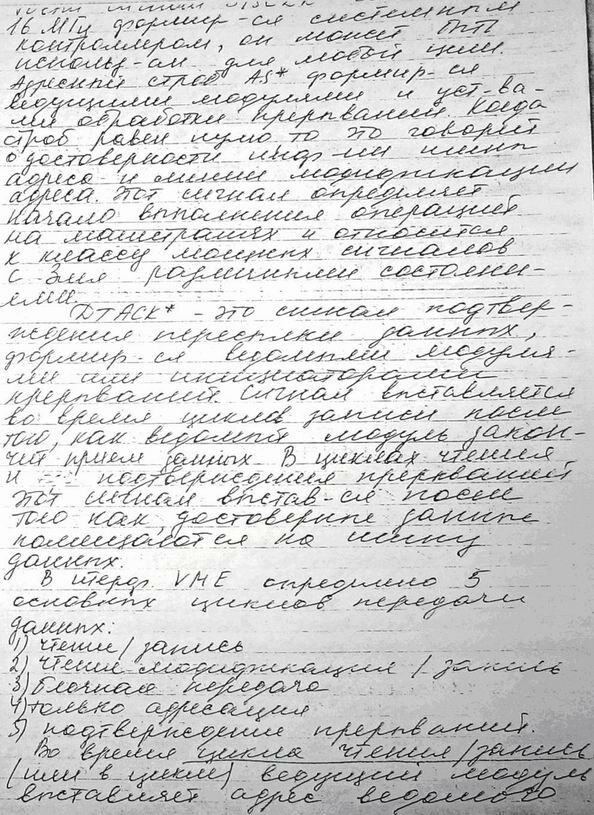 16 МГц формир-ся системным
контроллером, он может быть
использ-ан для любой цели.
Адресный строб AS* формир-ся
ведущими модулями и уст-ва-
ми обработки прерываний. Когда
строб равен нулю то это говорит
о достоверности инф-ии шины
адреса и линии модификации
адреса. Этот сигнал определяет
начало выполнения операций
на магистралях и относится
к классу мощных сигналов
с 3мя различными состояни-
ями.
DTACK* - это сигнал подтвер-
ждения пересылки данных,
формир-ся ведомыми модуля-
ми или инициаторами
прерываний. Сигнал выставляется
во время циклов записи после
того, как ведомый модуль закон-
чит прием данных. В циклах чтения
и подтверждения прерываний
этот сигнал выстав-ся после
того как, достоверные данные
помещаются на шину
данных.
В интерф. VME определено 5
основных циклов передачи
данных:
1) чтение/запись
2) чтение модификация / запись
3) блочная передача
4) только адресация
5) подтверждение прерываний.
Во время цикла чтения/запись
(или в цикле) ведущий модуль
выставляет адрес ведомого